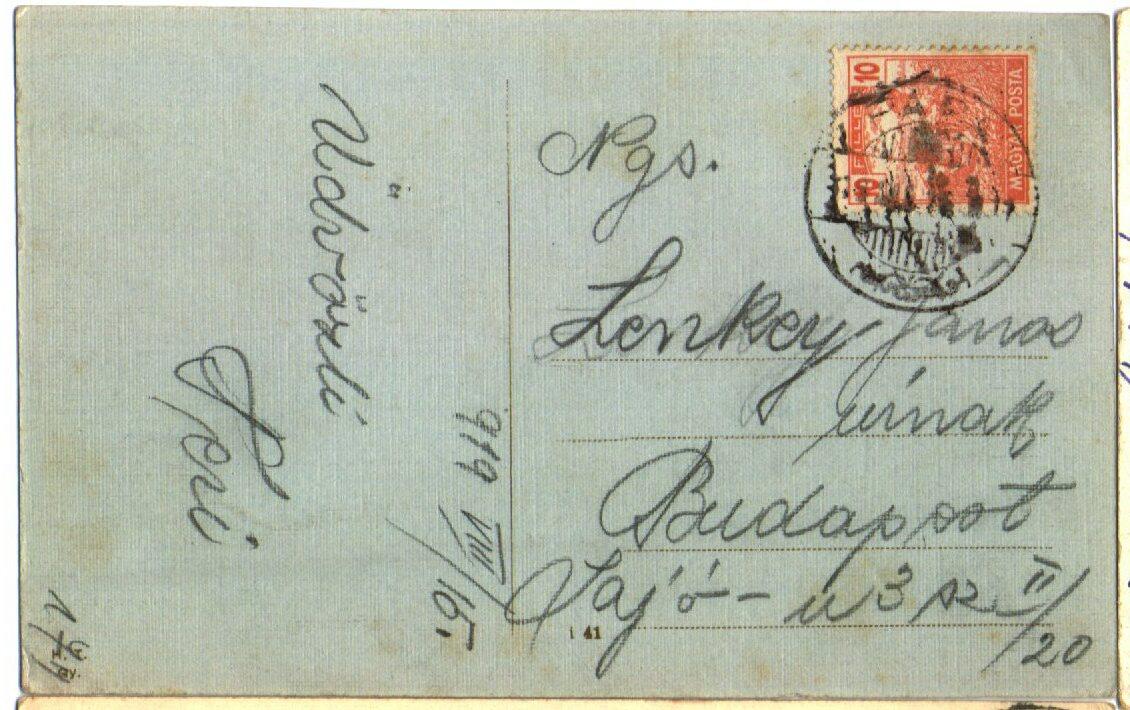 Üdvözli
919 VIII/15.
Ngs.
Lenkey János
úrnak
Budapest
Sajó-u 3 sz II/20
10 FILLÉR 10
MAGYAR POSTA
41